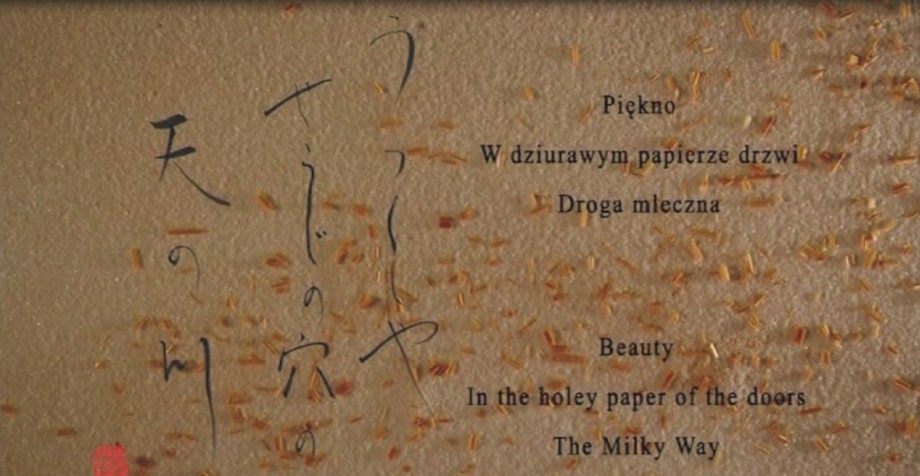 うつくしや
の穴の
天の川
Piękno
W dziurawym papierze drzwi
Droga mleczna
Beauty
In the holey paper of the doors
The Milky Way